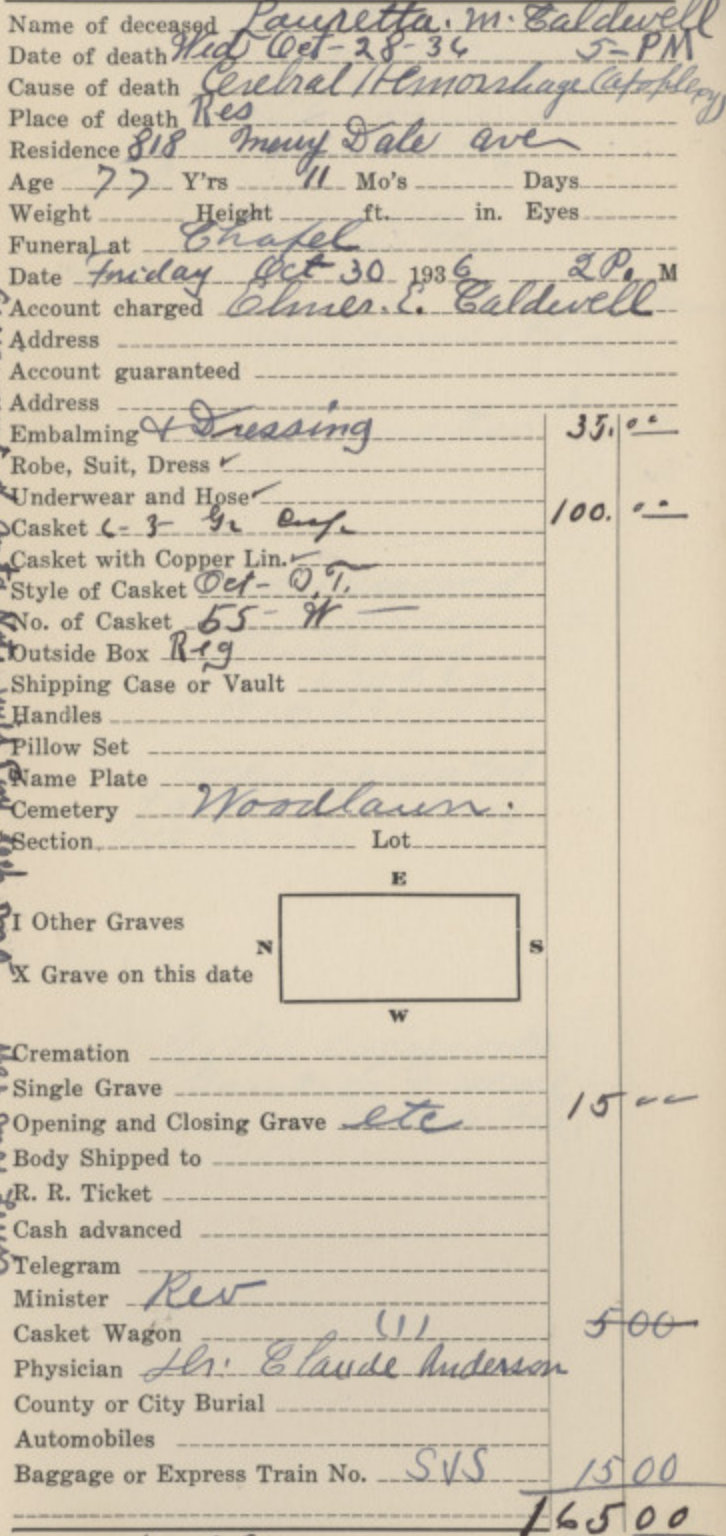 Name of deceased Lauretta. M. Caldwell
Date of death Wed Oct-28-36 5-PM
Cause of death Cerebral Hemorrhage (apoplexy)
Place of death Res
Residence 818 Merry Dale ave
Age 77 Y'rs 11 Mo's Days
Weight Height ft. in. Eyes
Funeral at Chapel
Date Friday Oct 30 1936 2 P. M
Account charged Elmer. E. Caldwell
Address
Account guaranteed
Address
Embalming & Dressing 35.00
Robe, Suit, Dress ✓
Underwear and Hose ✓
Casket 6-3 Gr 100.00
Casket with Copper Lin. ✓
Style of Casket Oct- O.T.
No. of Casket 55 W
Outside Box Reg
Shipping Case or Vault
Handles
Pillow Set
Name Plate
Cemetery Woodlawn.
Section Lot
E
I Other Graves
N S
X Grave on this date
W
Cremation
Single Grave
Opening and Closing Grave etc 15 00
Body Shipped to
R. R. Ticket
Cash advanced
Telegram
Minister Rev
Casket Wagon (1) 5 00
Physician Dr. Claude Anderson
County or City Burial
Automobiles
Baggage or Express Train No. SVS 15 00
165 00